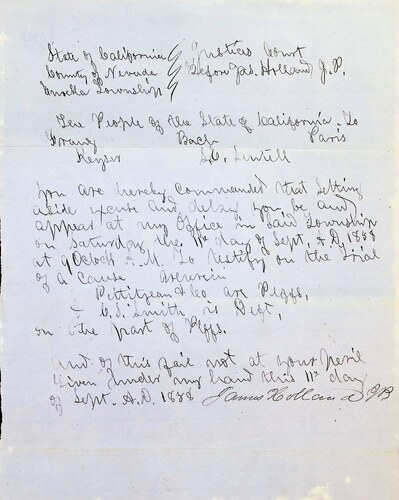 State of California } Justices Court
County of Nevada } Before Jas. Holland J. P.
Eureka Township }
The People of the State of California, To
Grandy Bach Paris
Keyser
You are hereby Commanded that Setting
aside excuse and delay you be and
appear at my Office in Said Township
on Saturday the 11th day of Sept, A. D. 1858
at 9 Oclock A. M. To testify on the trial
of a Cause wherein
Pettijean & Co are Plffs,
& C. S. Smith is Deft,
on the part of Plffs.
And of this fail not at your peril
Given under my hand this 11th day
of Sept. A. D. 1858 James Holland J P